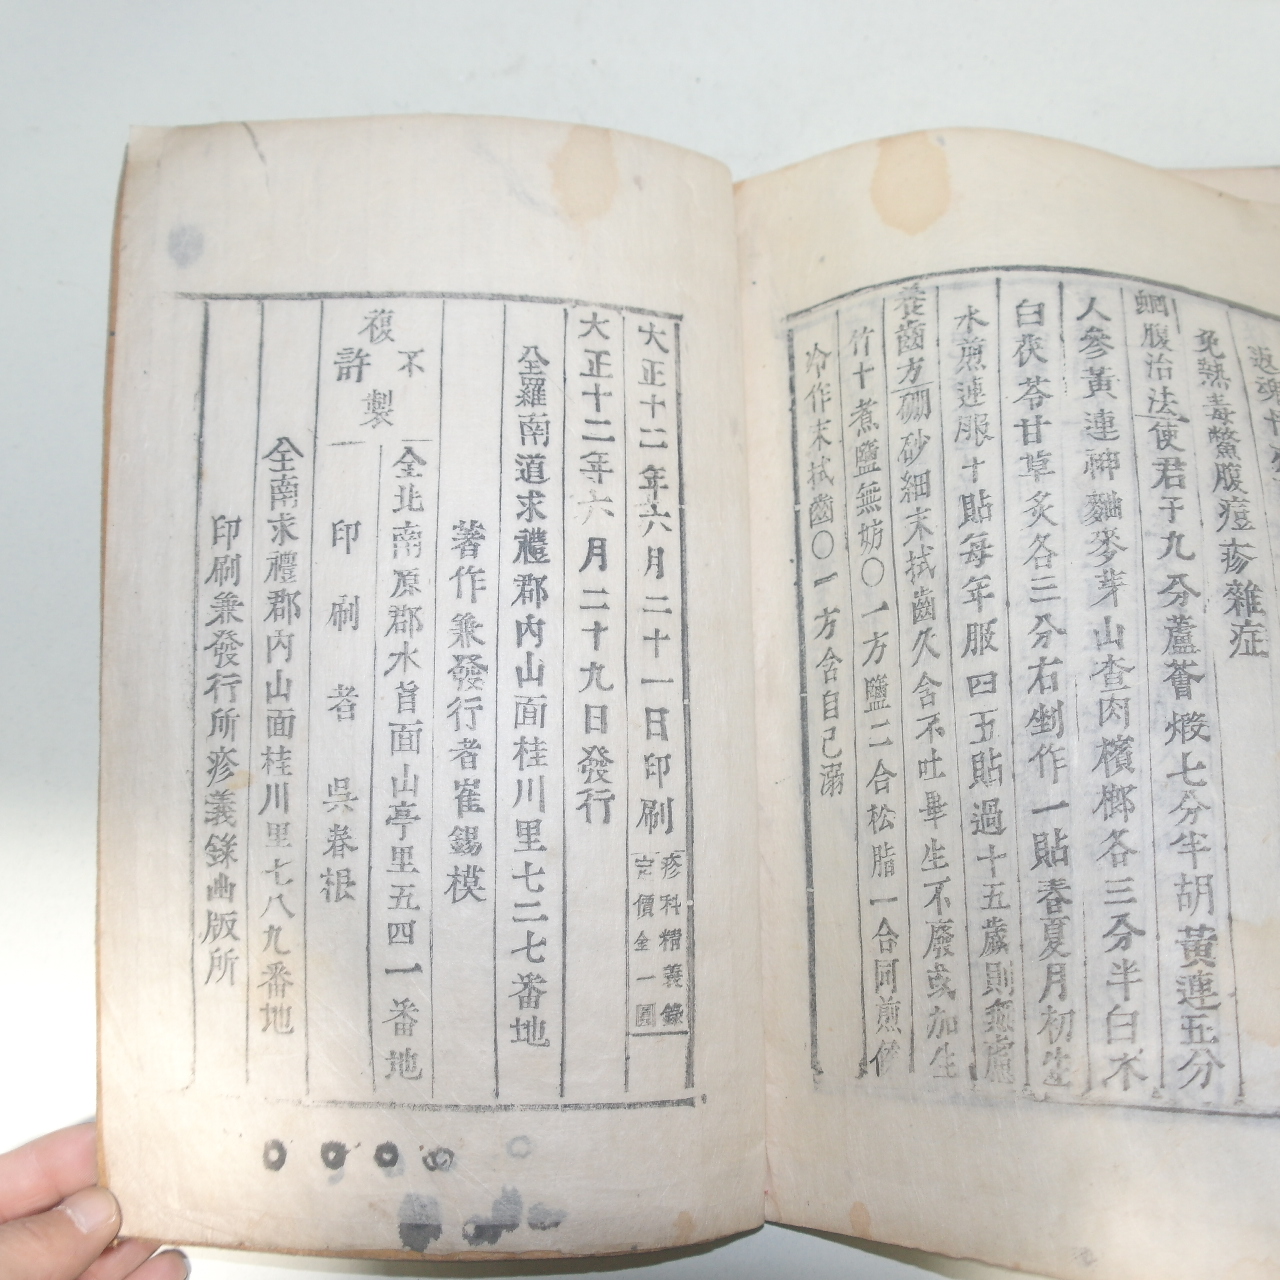 免熱毒鱉腹痘疹雜症
蛔腹治法使君子九分蘆薈煅七分半胡黃連五分
人參黃連神麯麥芽山查肉檳榔各三分半白朮
白茯苓甘草炙各三分右剉作一貼春夏月初生
水煎連服十貼每年服四五貼過十五歲則無慮
養齒方硼砂細末拭齒久含不吐畢生不廢或加生
竹十煮鹽無妨〇一方鹽二合松脂一合同煎
冷作末拭齒〇一方含自己溺
大正十二年六月二十一日印刷
疹科精義錄
定價全一圓
大正十二年六月二十九日發行
全羅南道求禮郡內山面桂川里七二七番地
著作兼發行者崔錫模
全北南原郡水旨面山亭里五四一番地
不許複製
印刷者 吳春根
全南求禮郡內山面桂川里七八九番地
印刷兼發行所疹義錄出版所